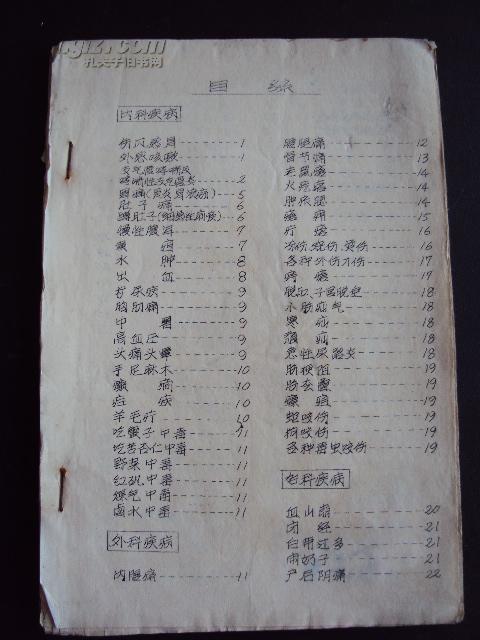 孔夫子旧书网
目 录
内科疾病
伤风感冒 1
外感咳嗽 1
支气管哮喘及
喘息性支气管炎 2
胃痛(胃炎胃溃疡) 5
肚子痛 6
蹲肚子(细菌性痢疾) 6
慢性腹泻 7
黄疸 7
水肿 8
出血 8
打尿疾 9
胸肋痛 9
中暑 9
高血压 9
头痛头晕 9
手足麻木 10
癫痫 10
疟疾 10
羊毛疔 10
吃蟹子中毒 11
吃苦杏仁中毒 11
野菜中毒 11
红矾中毒 11
煤气中毒 11
卤水中毒 11
外科疾病
内腿痛 11
腰腿痛 12
骨节痛 13
老鼠疮 14
火疙瘩 14
肿疙瘩 14
疮疖 15
疔疮 16
冻伤、烧伤、烫伤 16
各种外伤刀伤 17
痔疮 17
脱肛、子宫脱垂 18
小肠疝气 18
寒疝 18
狐疝 18
急性尿路炎 18
肠梗阻 19
肠套叠 19
瘰疽 19
蛇咬伤 19
狗咬伤 19
各种毒虫咬伤 19
妇科疾病
血山崩 20
闭经 21
白带过多 21
闹奶子 21
产后阴痛 22